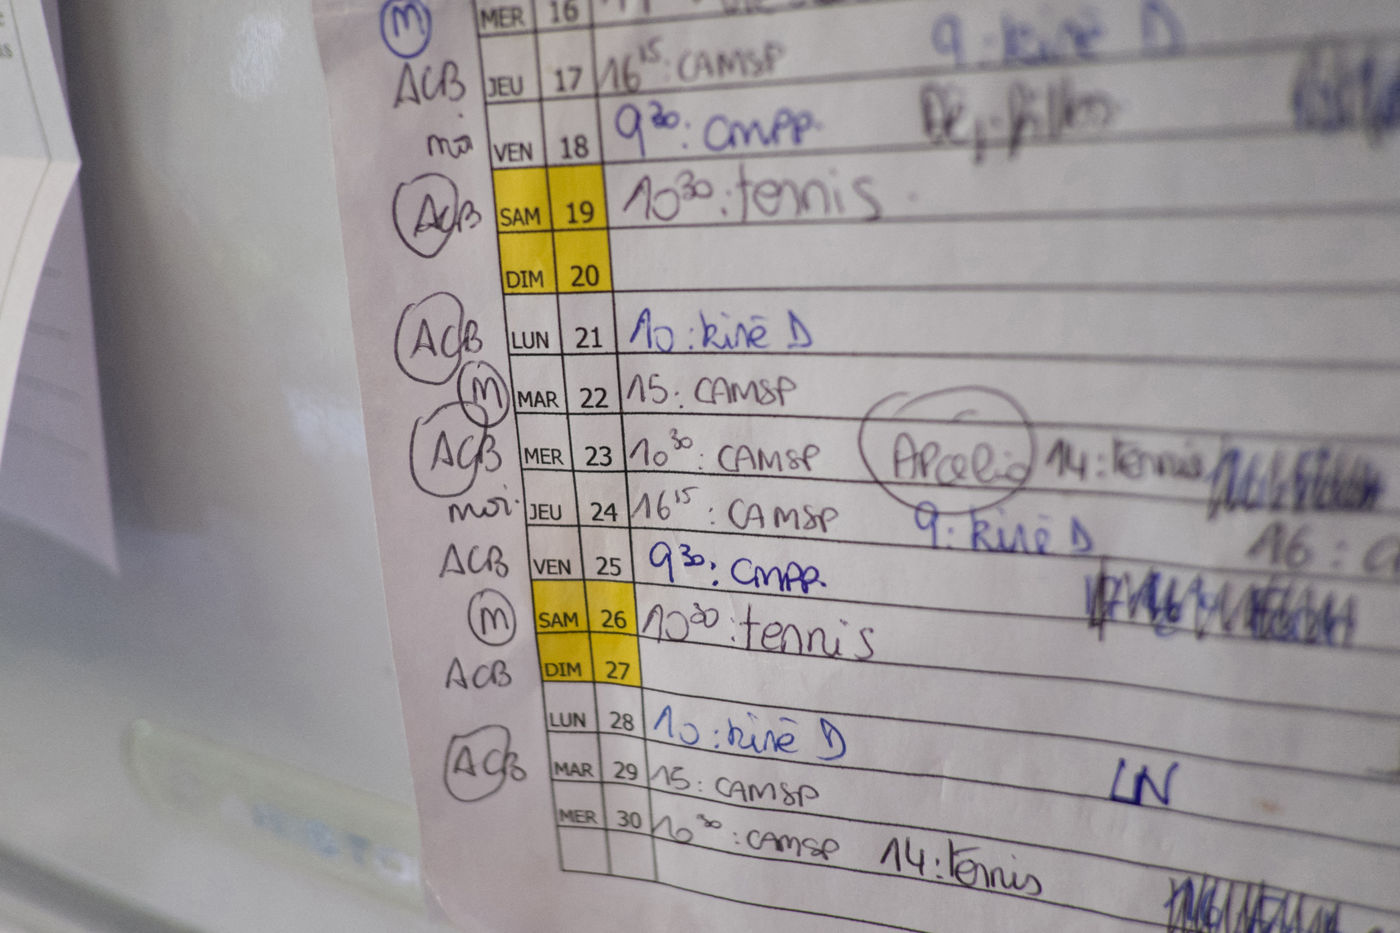 M MER 16
ACB JEU 17 16 15 : CAMSP 9 : kiné D
moi VEN 18 9 30 : CMPP.
ACB SAM 19 10 30 : tennis
DIM 20
ACB LUN 21 10 : kiné D
M MAR 22 15 : CAMSP
ACB MER 23 10 30 : CAMSP 14 : tennis
moi JEU 24 16 15 : CAMSP 9 : kiné D 16 : C
ACB VEN 25 9 30 : CMPP.
M SAM 26 10 30 : tennis
ACB DIM 27
LUN 28 10 : kiné D LN
ACB MAR 29 15 : CAMSP
MER 30 10 30 : CAMSP 14 : tennis